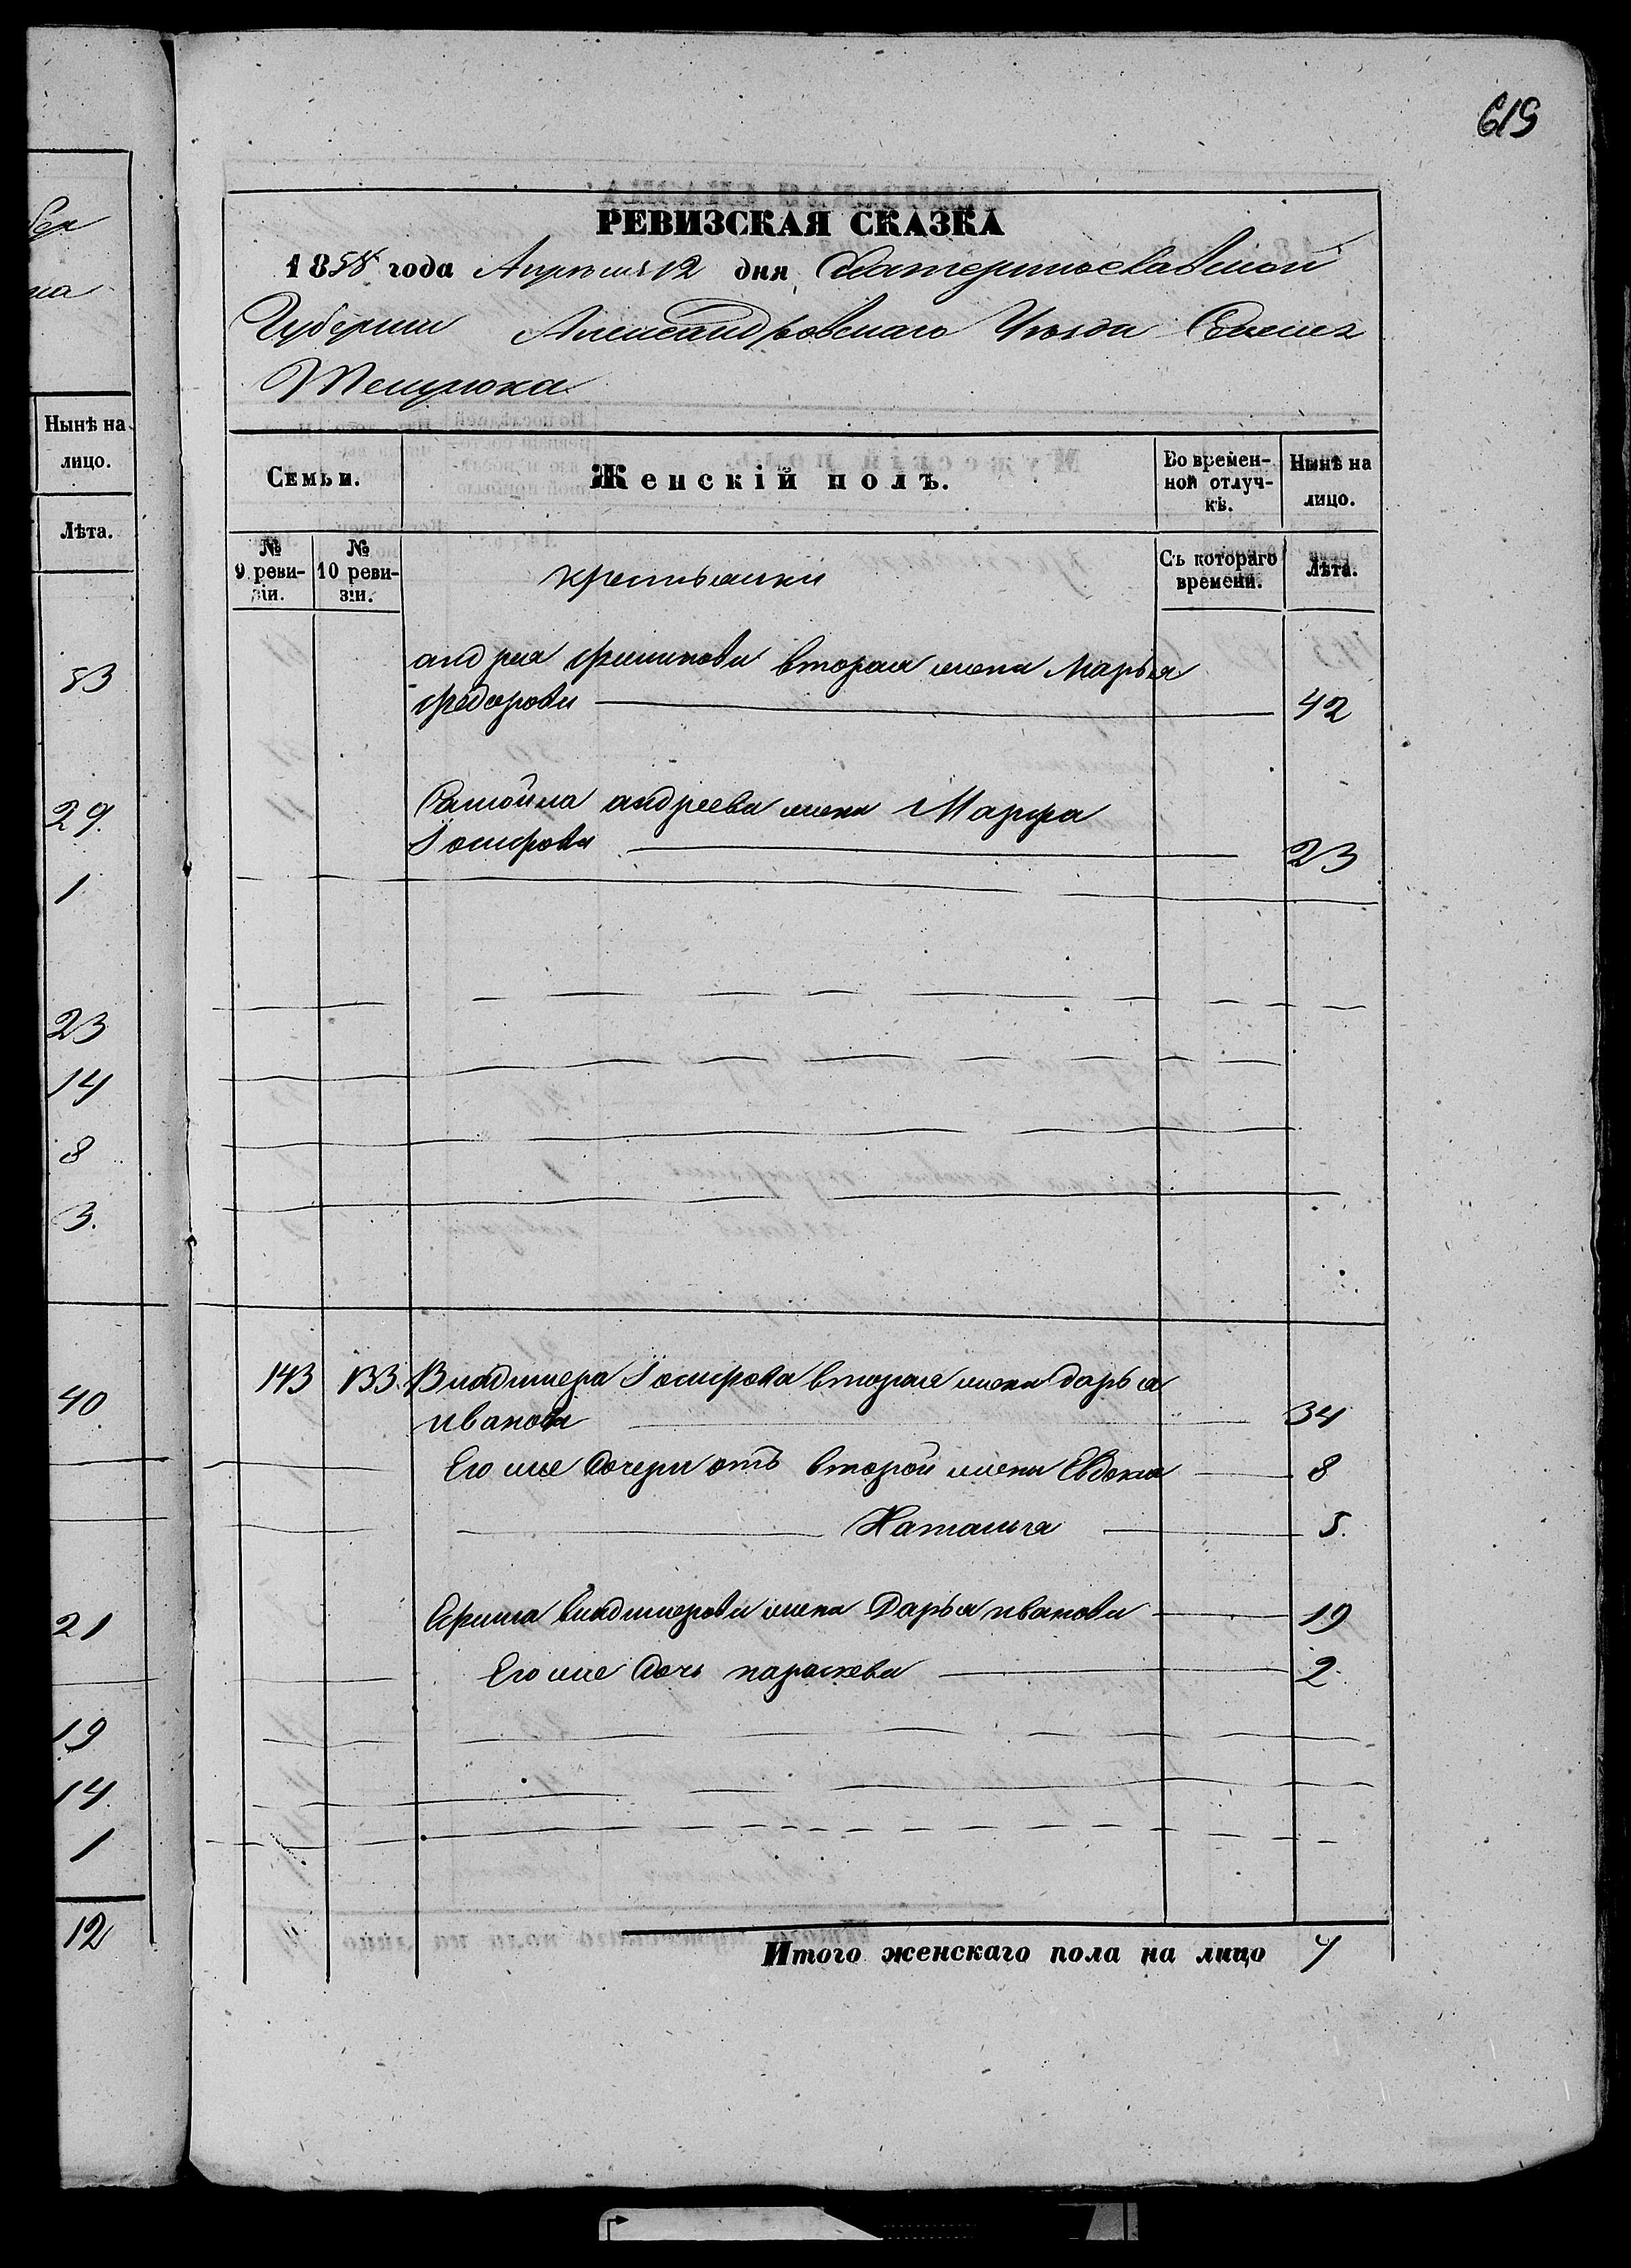 619
РЕВИЗСКАЯ СКАЗКА
1858 года Апреля 12 дня Екатеринославской
Губернии Александровскаго Уѣзда Села
Темрюка
Семьи.
Женскій полъ.
Во времен-
ной отлуч-
кѣ.
Нынѣ на
лицо.
№
9 реви-
зіи.
№
10 реви-
зіи.
крестьянки
Съ котораго
времени.
Лѣта.
андрея филипова вторая жена Марья
федорова 42
Самойла андреева жена Марфа
Іосифова 23
143 133 Владимера Іосифова вторая жена дарья
иванова 34
Его же дочери отъ второй жены Евдокия 8
Наталья 5.
Ефима владимерова жена Дарья иванова 19
Его же дочь параскева 2.
Итого женскаго пола на лицо 7
Нынѣ на
лицо.
Лѣта.
53
29.
1
23
14
8
3.
40
21
19
14
1
12